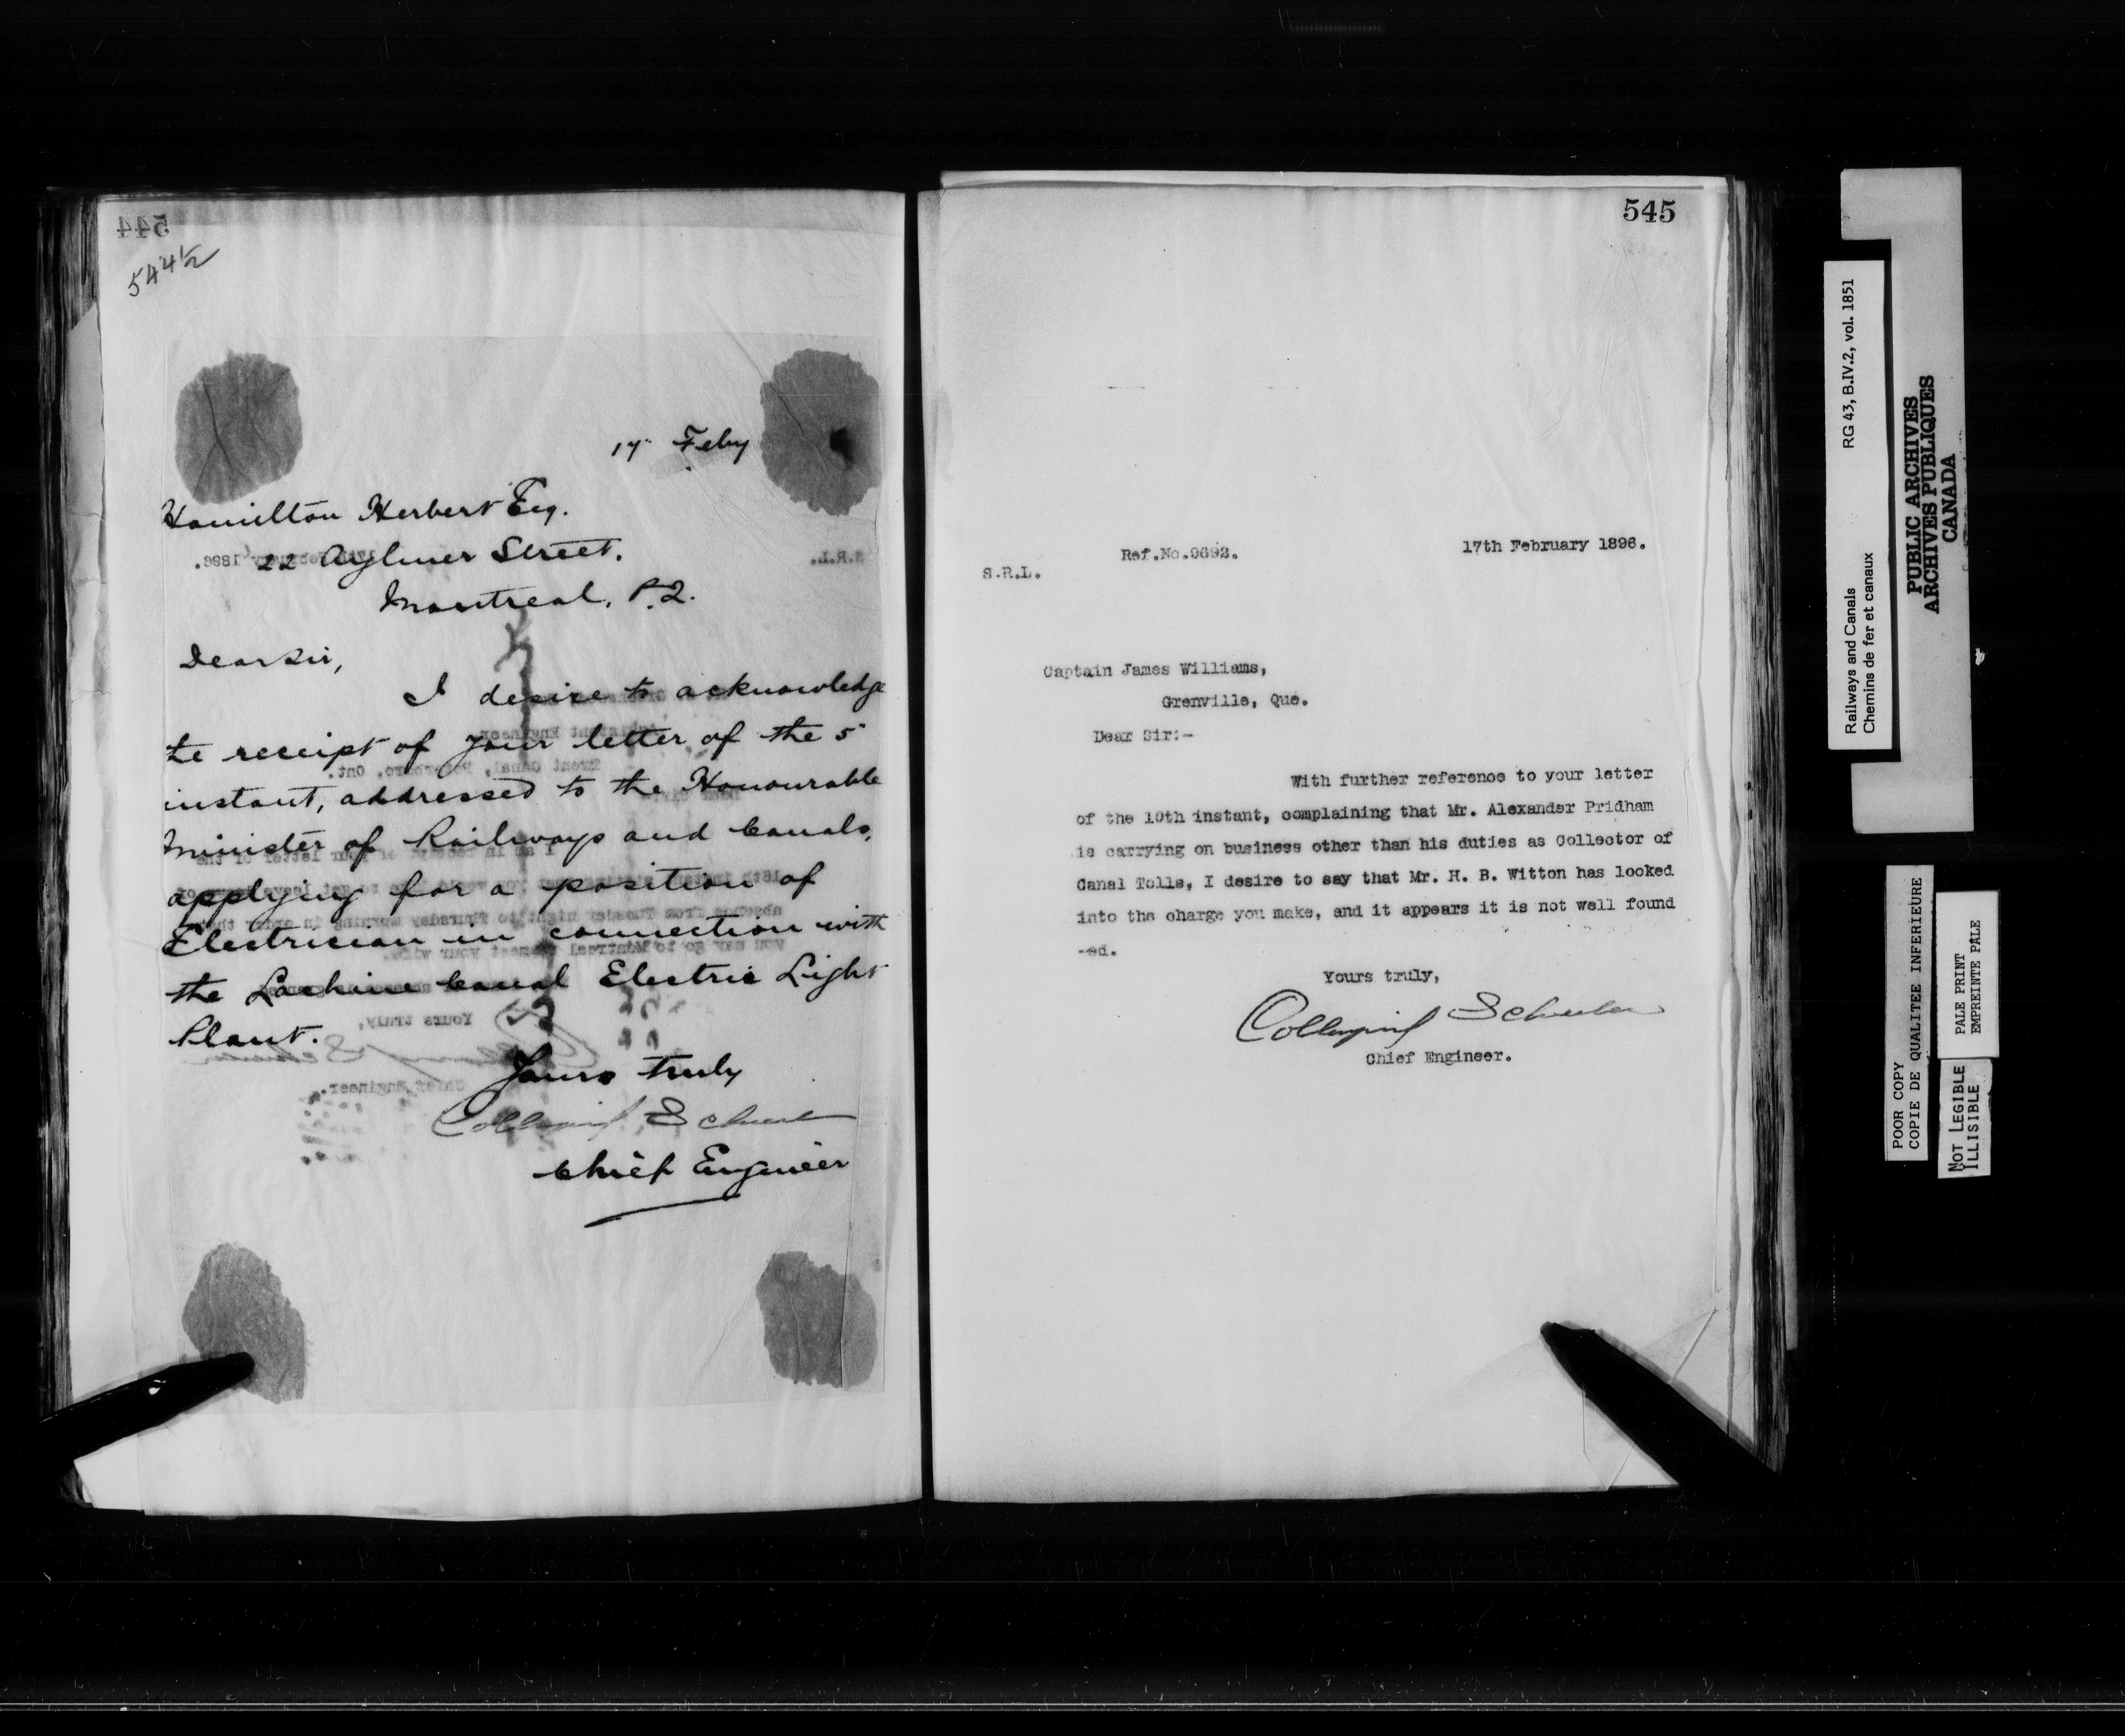 544
544½
17 Feby
Hamilton Herbert Esq.
22 Aylmer Street.
Montreal, P.Q.
Dear Sir,
I desire to acknowledge
the receipt of your letter of the 5"
instant, addressed to the Honourable
Minister of Railways and Canals,
applying for a position of
Electrician in connection with
the Lachine Canal Electric Light
Plant.
Yours truly
Collingwood Schreiber
Chief Engineer
545
17th February 1896.
Ref.No.9692.
S.R.L.
Captain James Williams,
Grenville, Que.
Dear Sir:-
With further reference to your letter
of the 10th instant, complaining that Mr. Alexander Pridham
is carrying on business other than his duties as Collector of
Canal Tolls, I desire to say that Mr. H. B. Witton has looked
into the charge you make, and it appears it is not well found
-ed.
Yours truly,
Collingwood Schreiber
Chief Engineer.
Railways and Canals RG 43, B.IV.2, vol. 1851
Chemins de fer et canaux
PUBLIC ARCHIVES
ARCHIVES PUBLIQUES
CANADA
POOR COPY
COPIE DE QUALITEE INFERIEURE
PALE PRINT
EMPREINTE PÂLE
NOT LEGIBLE
ILLISIBLE